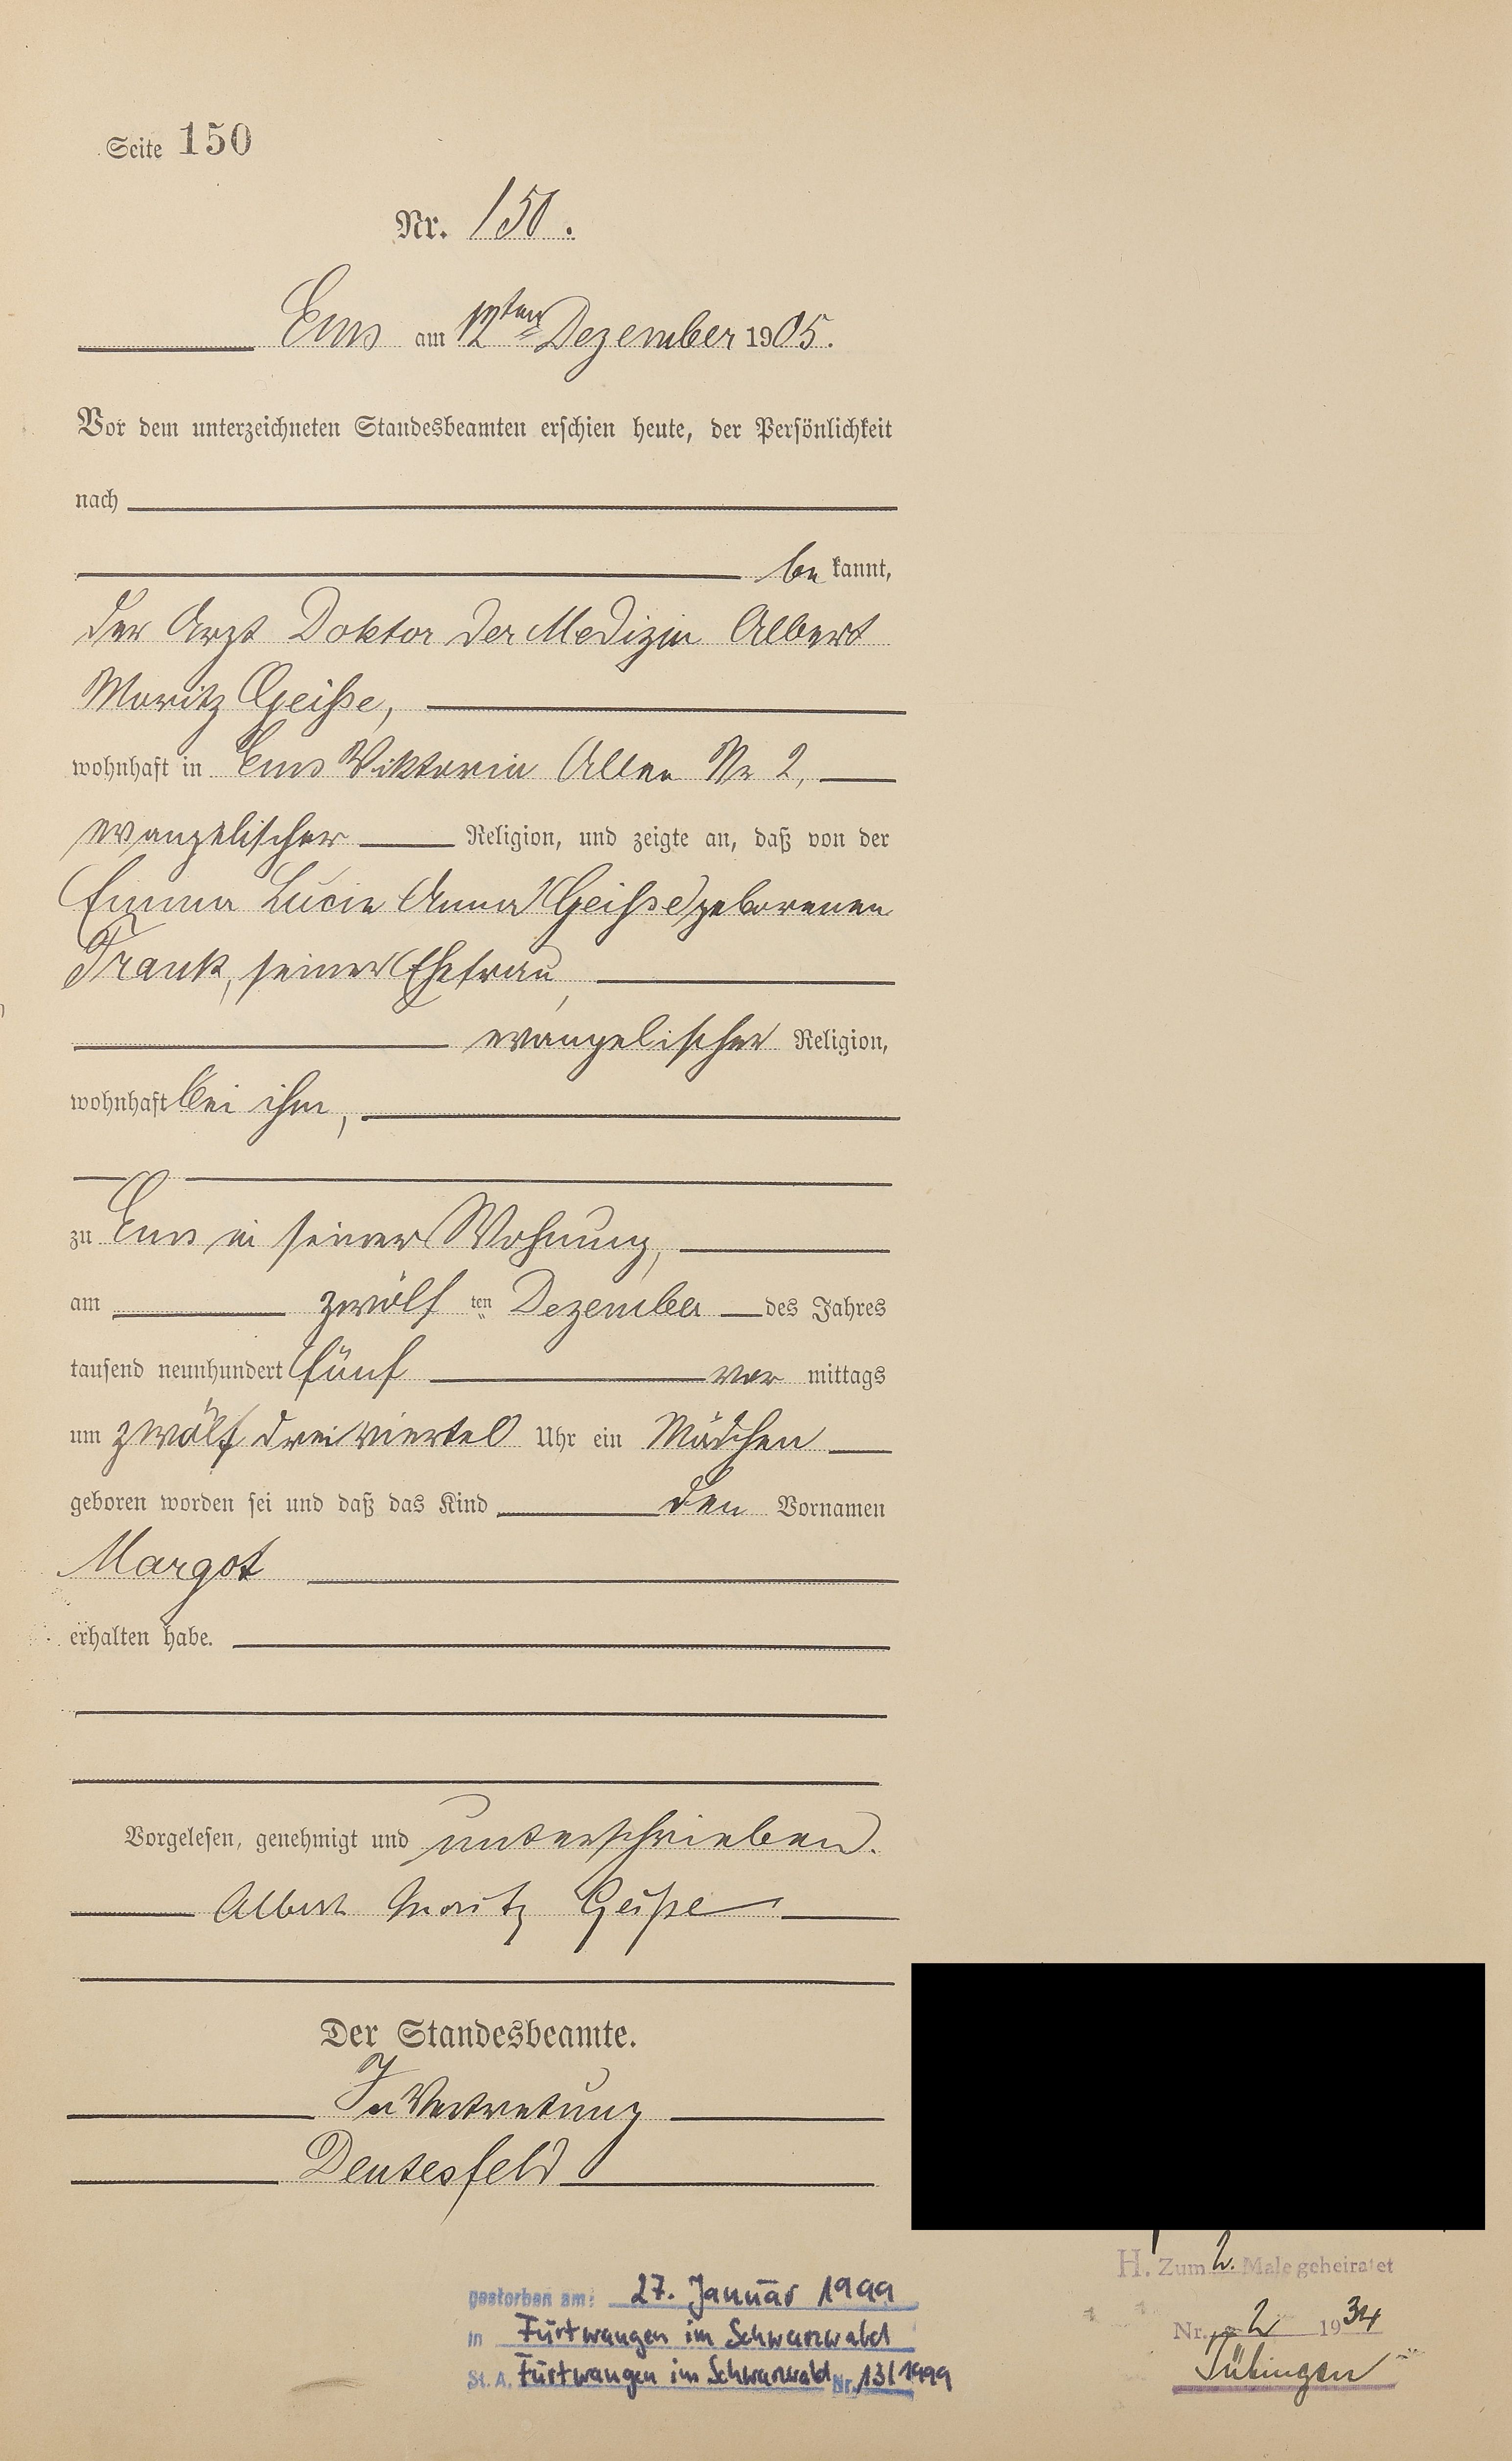 Seite 150
Nr. 150.
Ems am 12ten Dezember 1905.
Vor dem unterzeichneten Standesbeamten erschien heute, der Persönlichkeit
nach
be kannt,
der Arzt Doktor der Medizin Albert
Moritz Geiße,
wohnhaft in Ems Viktoria Allee Nr 2,
evangelischer Religion, und zeigte an, daß von der
Emma Lucie Anna Geiße geborenen
Frank, seiner Ehefrau,
evangelischer Religion,
wohnhaft bei ihm,
zu Ems in seiner Wohnung,
am zwölf ten Dezember des Jahres
tausend neunhundert fünf vor mittags
um zwölf dreiviertel Uhr ein Mädchen
geboren worden sei und daß das Kind den Vornamen
Margot
erhalten habe.
Vorgelesen, genehmigt und unterschrieben.
Albert Moritz Geiße
Der Standesbeamte.
In Vertretung
Deutesfeld
H. Zum 2. Male geheiratet
Nr. 2 1934
Tübingen
gestorben am: 27. Januar 1999
in Furtwangen im Schwarzwald
St. A. Furtwangen im Schwarzwald Nr. 13/1999